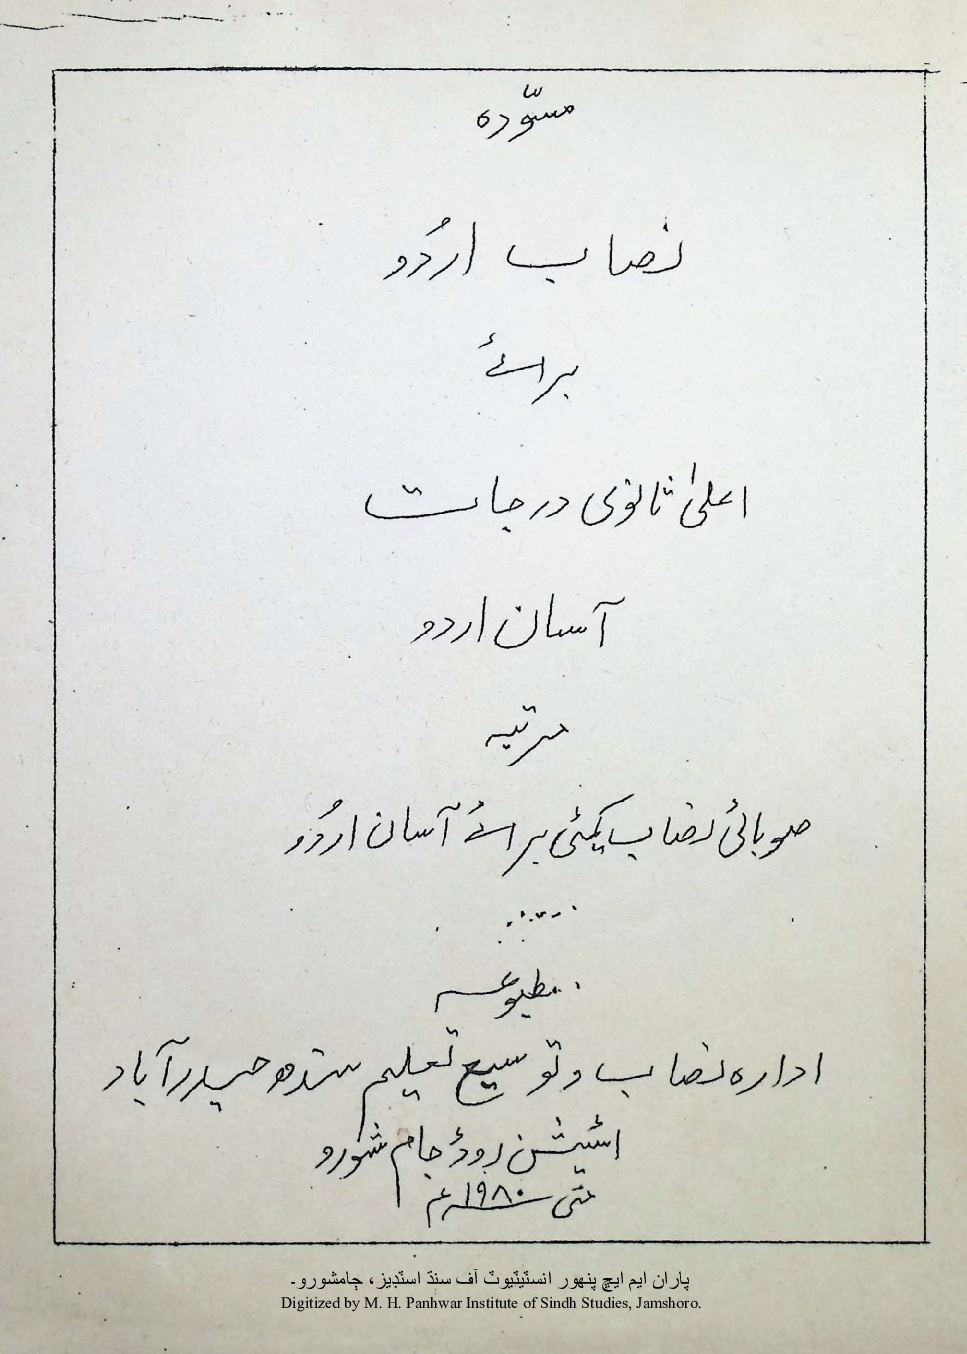 مسوّدہ
نصاب اردُو
برائے
اعلیٰ ثانوی درجات
آسان اردو
مرتبہ
صوبائی نصاب کمیٹی برائے آسان اردُو
مطبوعہ
ادارہ نصاب و توسیع تعلیم سندھ حیدرآباد
اسٹیشن روڈ جام شورو
مئی ۱۹۸۰ء
پاران ايم ايڇ پنهور انسٽيٽيوٽ آف سنڌ اسٽڊيز، ڄامشورو۔
Digitized by M. H. Panhwar Institute of Sindh Studies, Jamshoro.